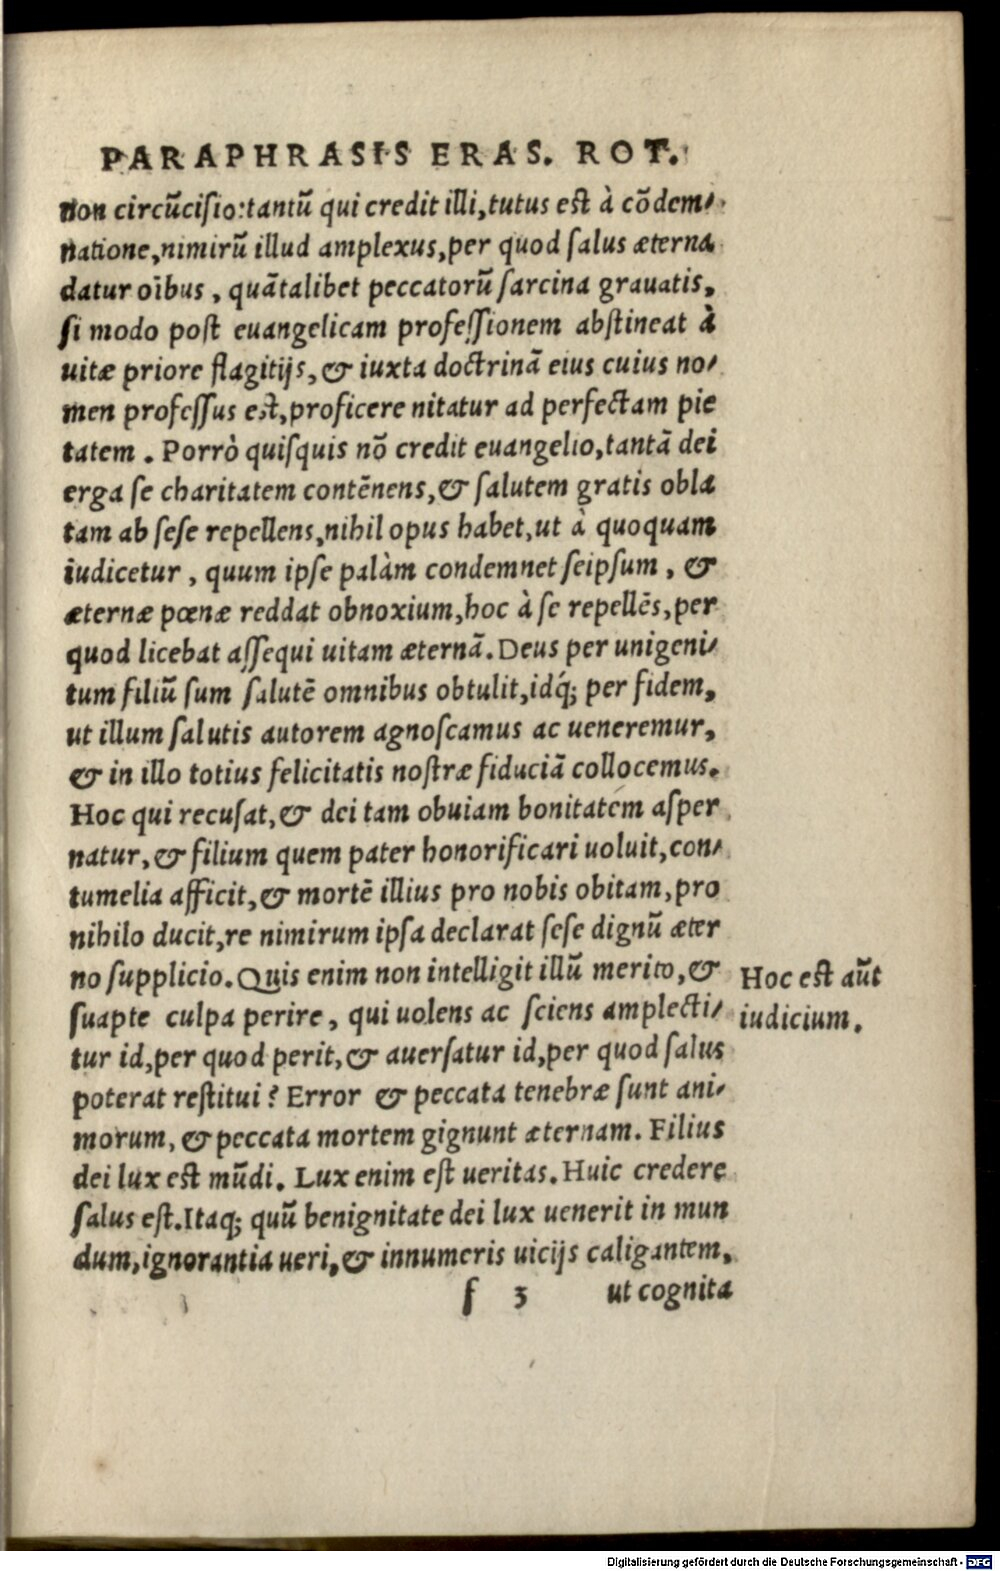 PARAPHRASIS ERAS. ROT.
non circũcisio:tantũ qui credit illi,tutus est à cõdem-
natione,nimirũ illud amplexus,per quod salus æterna
datur oĩbus, quãtalibet peccatorũ sarcina grauatis,
si modo post euangelicam professionem abstineat à
uitæ priore flagitijs, & iuxta doctrinã eius cuius no-
men professus est,proficere nitatur ad perfectam pie
tatem. Porrò quisquis nõ credit euangelio,tantã dei
erga se charitatem contẽnens,& salutem gratis obla
tam ab sese repellens,nihil opus habet,ut à quoquam
iudicetur, quum ipse palàm condemnet seipsum, &
æternæ pœnæ reddat obnoxium,hoc à se repellẽs,per
quod licebat assequi uitam æternã. Deus per unigeni-
tum filiũ sum salutẽ omnibus obtulit,idq́; per fidem,
ut illum salutis autorem agnoscamus ac ueneremur,
& in illo totius felicitatis nostræ fiduciã collocemus.
Hoc qui recusat,& dei tam obuiam bonitatem asper
natur,& filium quem pater honorificari uoluit,con-
tumelia afficit,& mortẽ illius pro nobis obitam,pro
nihilo ducit,re nimirum ipsa declarat sese dignũ æter
no supplicio. Quis enim non intelligit illũ merito,&
suapte culpa perire, qui uolens ac sciens amplecti-
tur id,per quod perit,& auersatur id,per quod salus
poterat restitui? Error & peccata tenebræ sunt ani-
morum, & peccata mortem gignunt æternam. Filius
dei lux est mũdi. Lux enim est ueritas. Huic credere
salus est. Itaq; quũ benignitate dei lux uenerit in mun
dum,ignorantia ueri,& innumeris uicijs caligantem,
f 3 ut cognita
Hoc est aũt
iudicium.
Digitalisierung gefördert durch die Deutsche Forschungsgemeinschaft - DFG